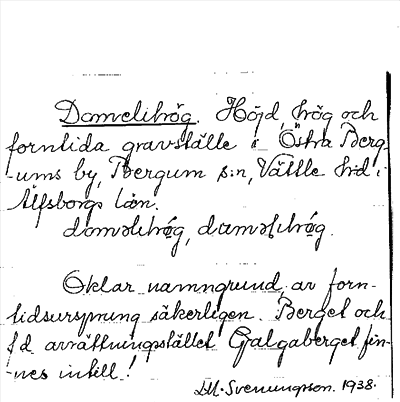 Domelihög. Höjd, hög och
forntida gravställe i Östra Berg-
-ums by, Bergum s:n, Vättle hd i
Älfsborgs län.
doməlihǫg, daməlihǫg.
Oklar namngrund, av forn-
tidsursprung säkerligen. Berget och
f d avrättningstället Galgaberget fin-
-nes intill!
Svenungson. 1938.